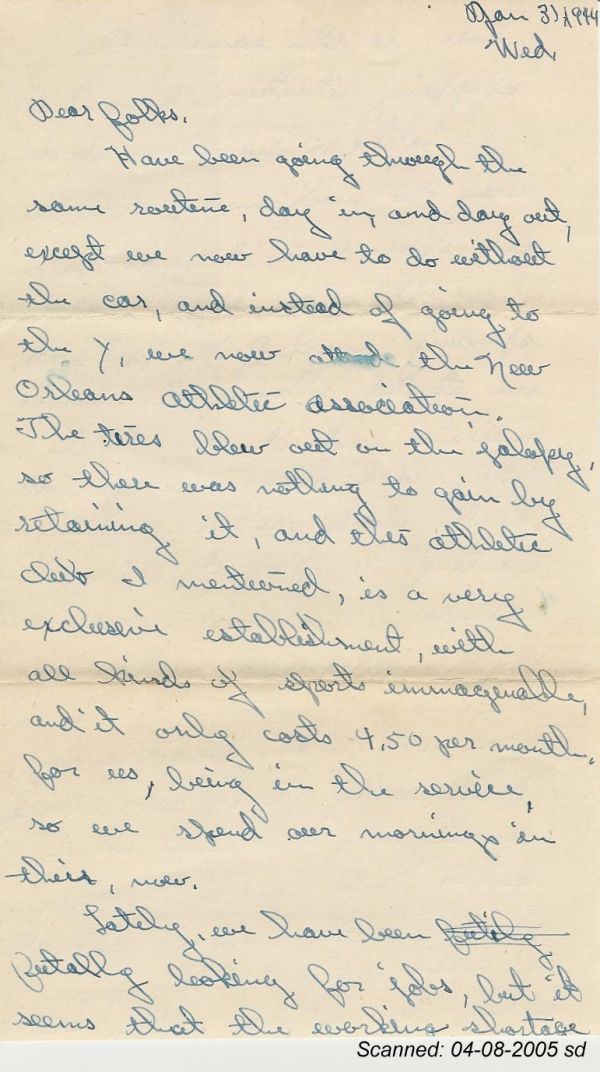 Jan 31, 1944
Wed
Dear folks.
Have been going through the
same routine, day in, and day out,
except we now have to do without
the car, and instead of going to
the Y, we now attend the New
Orleans athletic association.
The tires blew out on the jalopy,
so there was nothing to gain by
retaining it, and this athletic
club I mentioned, is a very
exclusive establishment, with
all kinds of sports immaganable,
and it only costs 4.50 per month,
for us, being in the service,
so we spend our mornings in
there, now.
Lately, we have been
futally looking for jobs, but it
seems that the working shortage
Scanned: 04-08-2005 sd